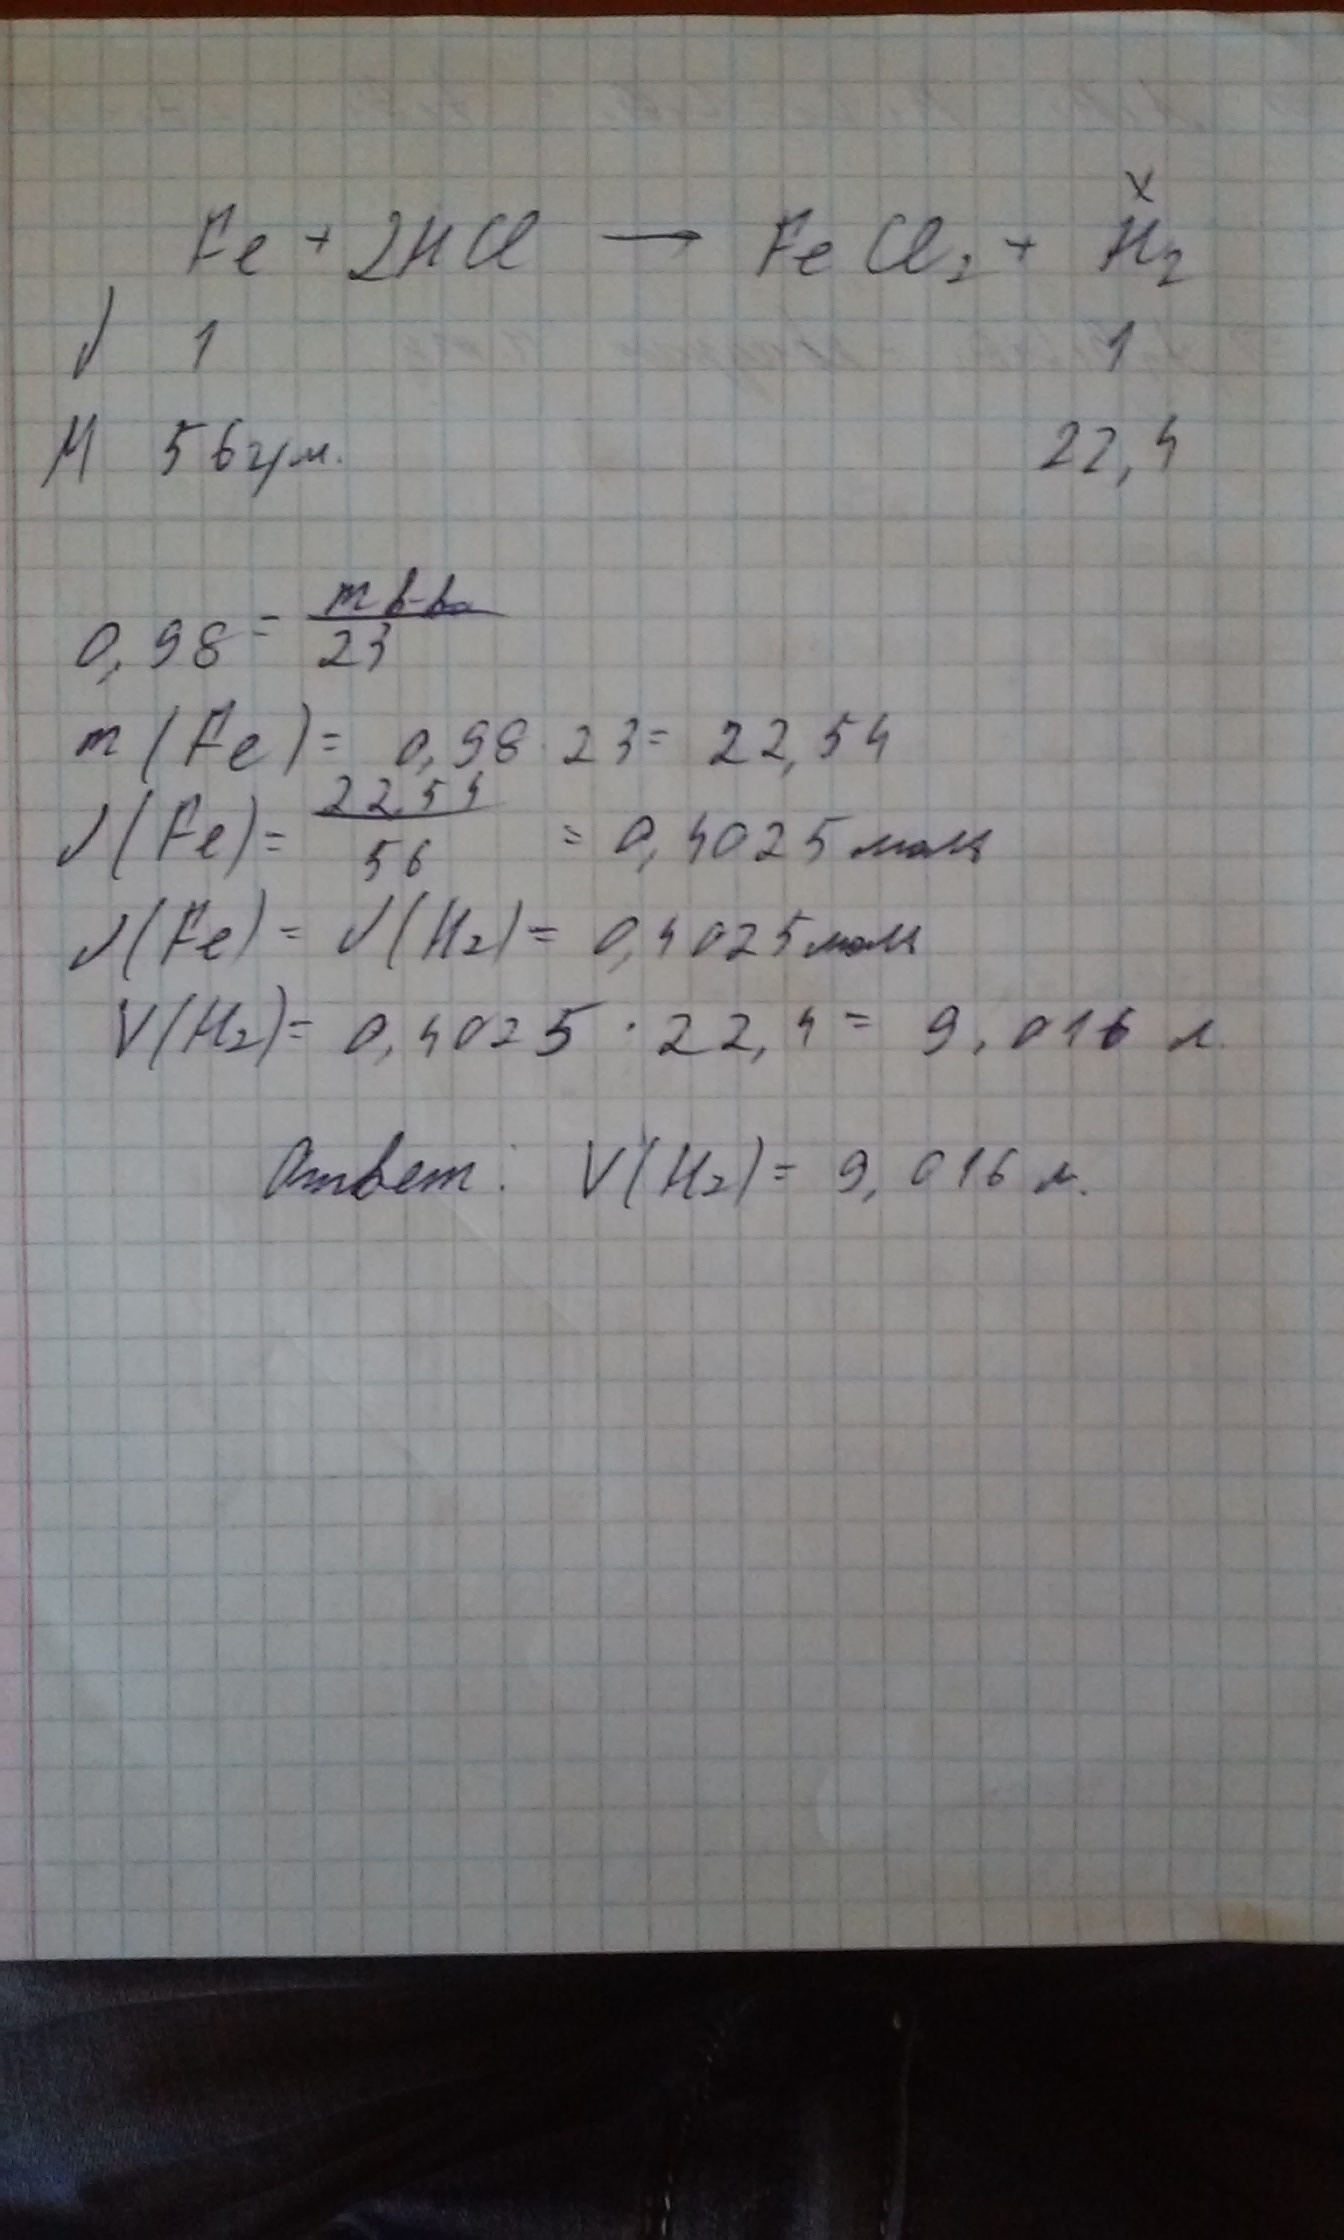 x
Fe + 2HCl → FeCl₂ + H₂
ν 1 1
M 56 г/м. 22,4
0,98 = m в-ва / 23
m (Fe) = 0,98 · 23 = 22,54
ν (Fe) = 22,54 / 56 = 0,4025 моль
ν (Fe) = ν (H₂) = 0,4025 моль
V(H₂) = 0,4025 · 22,4 = 9,016 л.
Ответ: V(H₂) = 9,016 л.